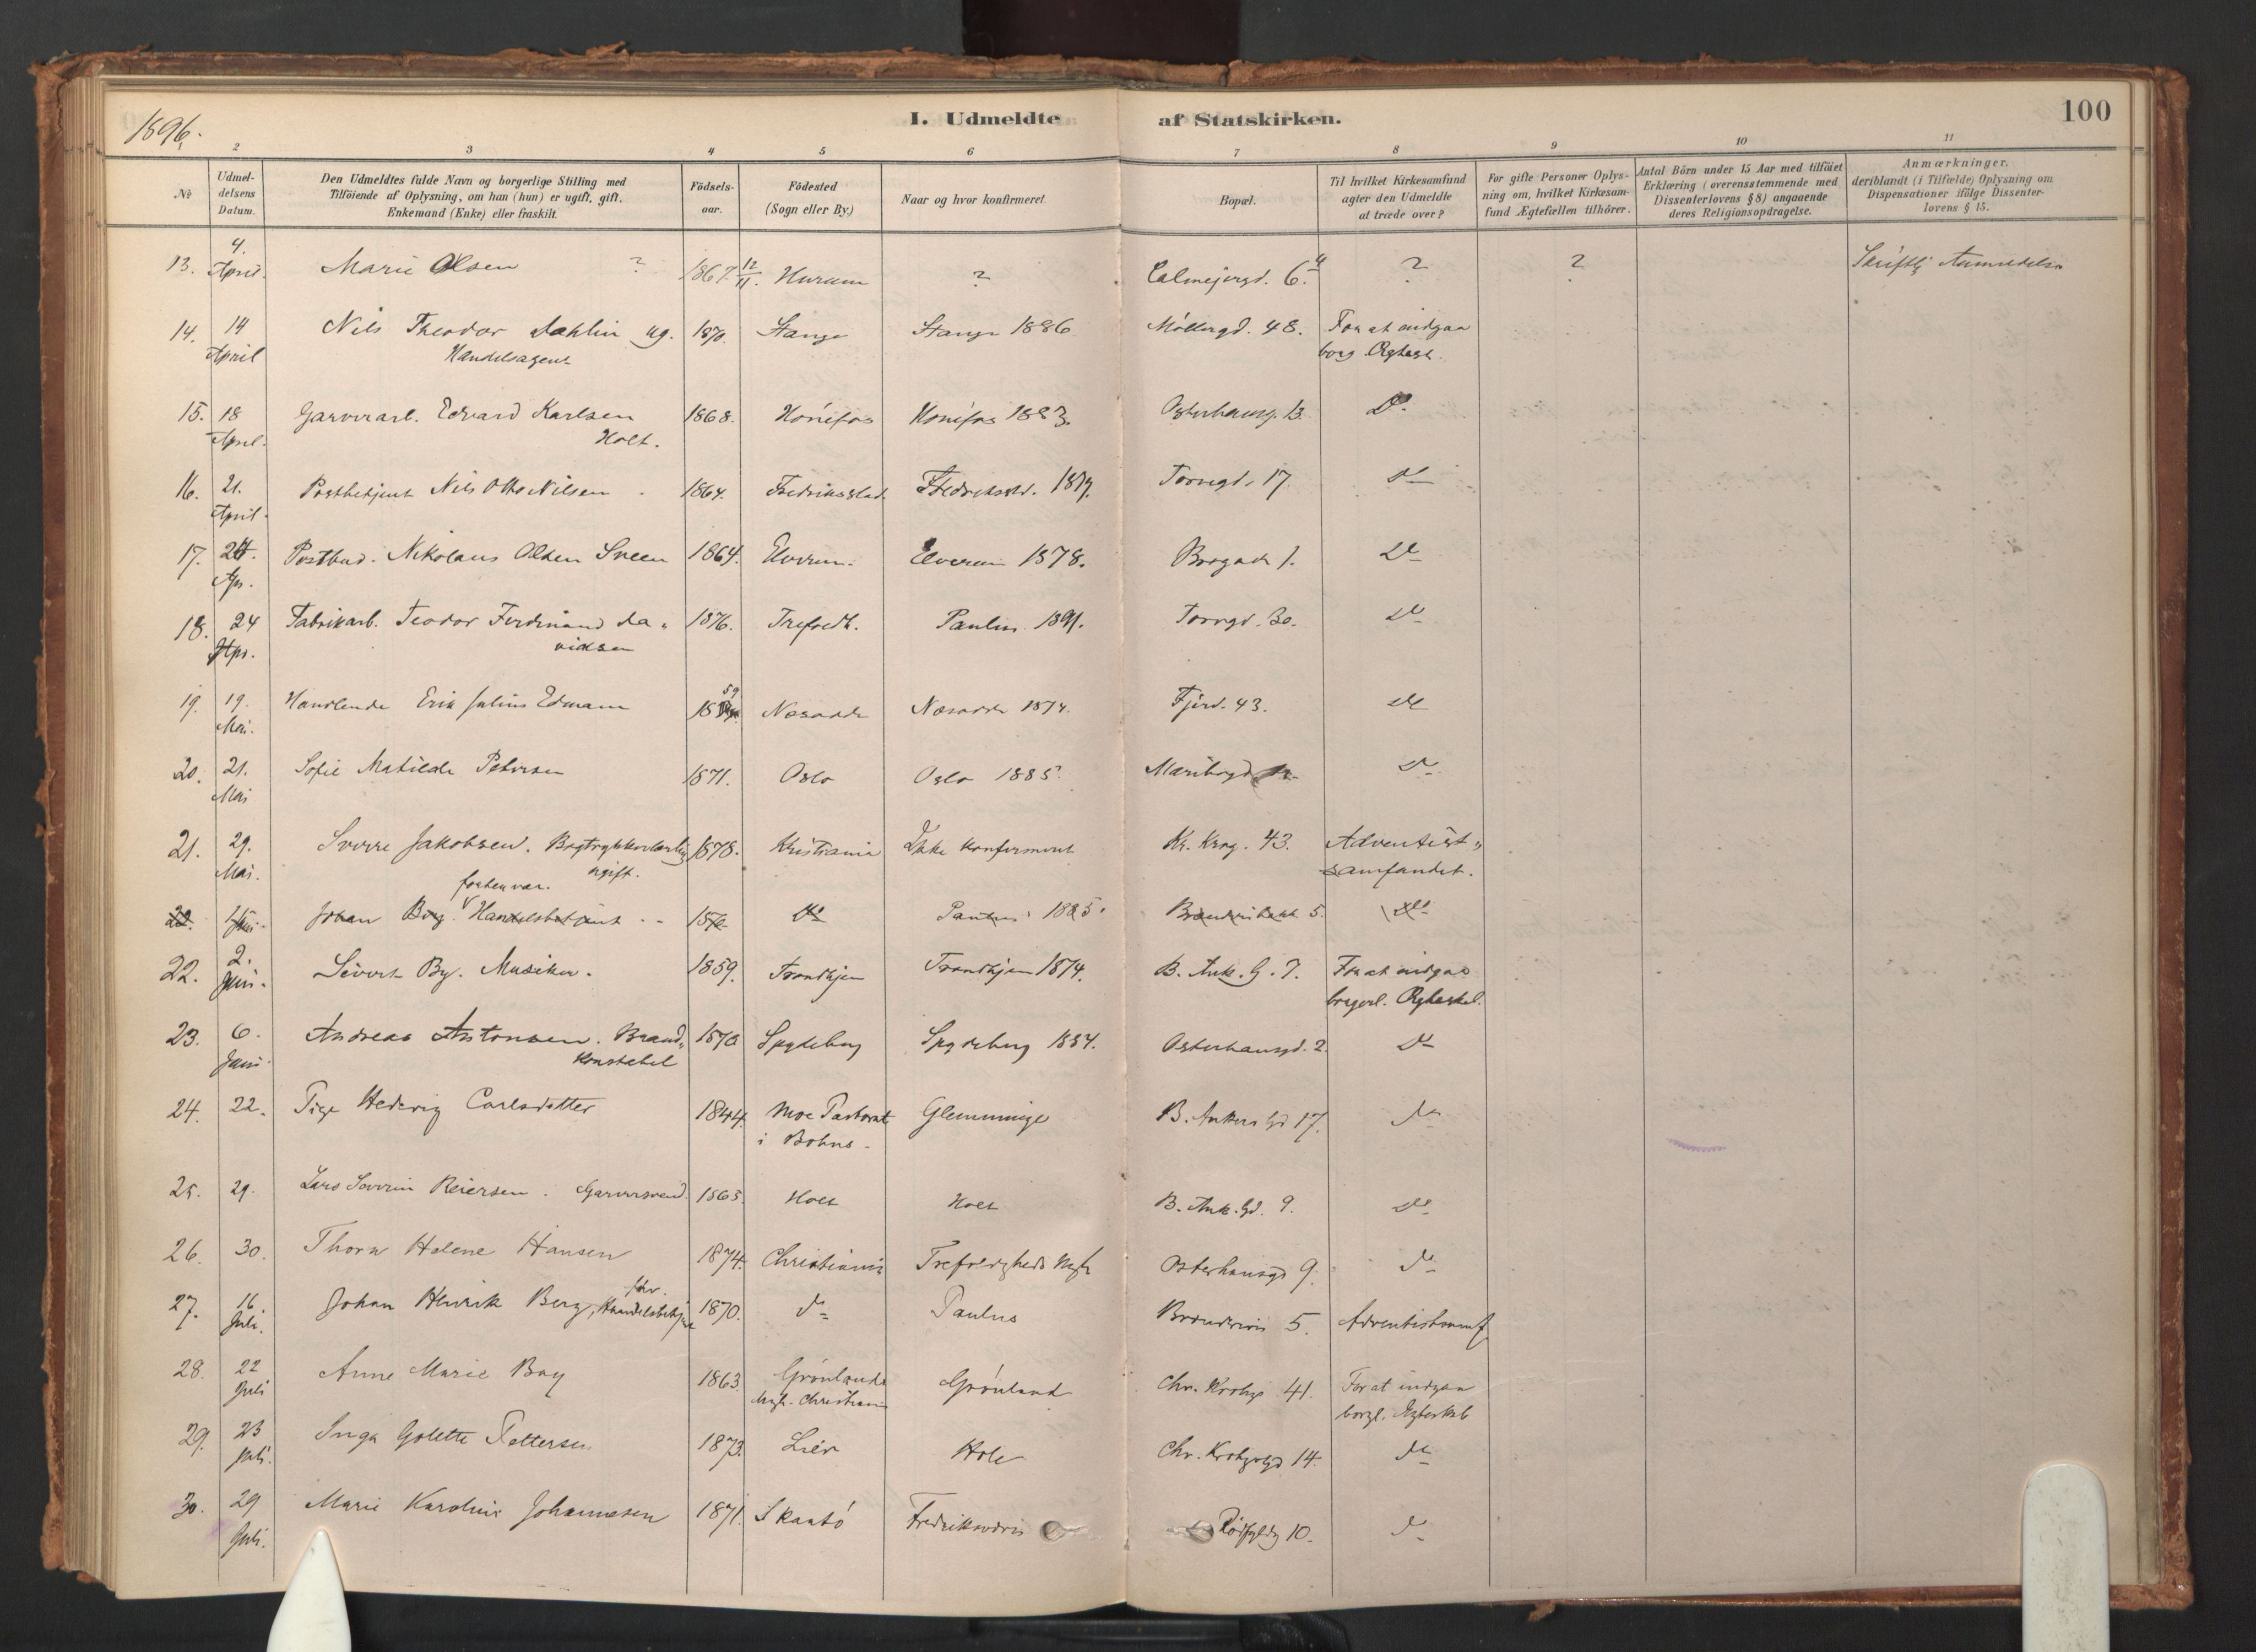 1896.
I. Udmeldte af Statskirken.
100
2 3 4 5 6 7 8 9 10 11
No
Udmel-
delsens
Datum.
Den Udmeldtes fulde Navn og borgerlige Stilling med
Tilföiende af Oplysning, om han (hun) er ugift, gift,
Enkemand (Enke) eller fraskilt.
Födsels-
aar.
Födested
(Sogn eller By.)
Naar og hvor konfirmeret.
Bopæl.
Til hvilket Kirkesamfund
agter den Udmeldte
at træde over?
For gifte Personer Oplys-
ning om, hvilket Kirkesam-
fund Ægtefællen tilhörer.
Antal Börn under 15 Aar med tilföiet
Erklæring (overensstemmende med
Dissenterlovens § 8) angaaende
deres Religionsopdragelse.
Anmærkninger,
deriblandt (i Tilfælde) Oplysning om
Dispensationer ifölge Dissenter-
lovens § 15.
13. 4. April. Marie Olsen ? 1867. 12/11. Hurum ? Calmejergd. 6. 4 ? ? Skriftlig Anmeldelse
14. 14 April Nils Theodor Dahlin ug. 1870. Stange Stange 1886 Möllergd. 48. For at indgaa
Handelsagent borg. Ægtesk.
15. 18 April. Garverarb. Edvard Karlsen 1868. Hönefos Hönefos 1883. Osterhausg. 13. Do
Holt.
16. 21. April. Postbetjent Nils Otto Nilsen 1864. Fredriksstad Fredriksstd. 1879. Torvegd. 17. do
17. 24. Apr. Postbud. Nikolaus Olsen Sveen 1864. Elverum. Elverum 1878. Brogade 1. Do
18. 24 Apr. Fabrikarb. Teodor Ferdinand Da- 1876. Trefoldh. Paulus 1891. Torvgd. 30. do
vidsen
19. 19. Mai. Handlende Erik Julius Edmann 1859 Nesodde Nesodde 1874. Fjerd. 43. do
20. 21. Mai Sofie Matilde Petersen 1871. Oslo Oslo 1885. Maribogd. do
21. 29. Mai. Sverre Jakobsen. Bogtrykkerlærling 1878. Kristiania Ikke konfirmeret Kr. Krog. 43. Adventist-
ugift. samfundet.
forhenvær.
22. Juni. Johan Berg. Handelsbetjent do Paulus 1885. 5. do
22. 2. Juni. Sivert By. Musiker. 1859. Trondhjem Trondhjem 1874. B. Ank. G. 7. For at indgaa
borgerl. Ægteskab.
23. 6. Juni. Andreas Antonsen. Brand- 1870 Spydeberg Spydeberg 1884. Osterhausgd. 2. do
konstabel
24. 22. Pige Hedevig Carlsdatter 1844. Moe Pastorat Glemminge B. Ankers Gd 17. do
i Bohus.
25. 29. Lars Severin Reiersen. Garversvend. 1865. Holt Holt B. Ank. Gd. 9. do
26. 30. Thora Helene Hansen 1874. Christiania Trefoldigheds Mgh Osterhausgd 9. do
27. 16. Juli. Johan Henrik Berg, forv. Handelsbetjent 1870. do Paulus Brænderiv 5. Adventistsamf
28. 22 Juli Anne Marie Bay 1863 Grönlands Grönland Chr. Krohgs 41. For at indgaa
Mgh. Christiania borgl. Ægteskab
29. 23 Juli. Inga Golette Pettersen 1873. Lier Hole Chr. Krohgsgd 14. do
30. 29 Juli. Marie Karoline Johannesen 1871. Skaatö Fredriksværn Rödfyldg 10. do